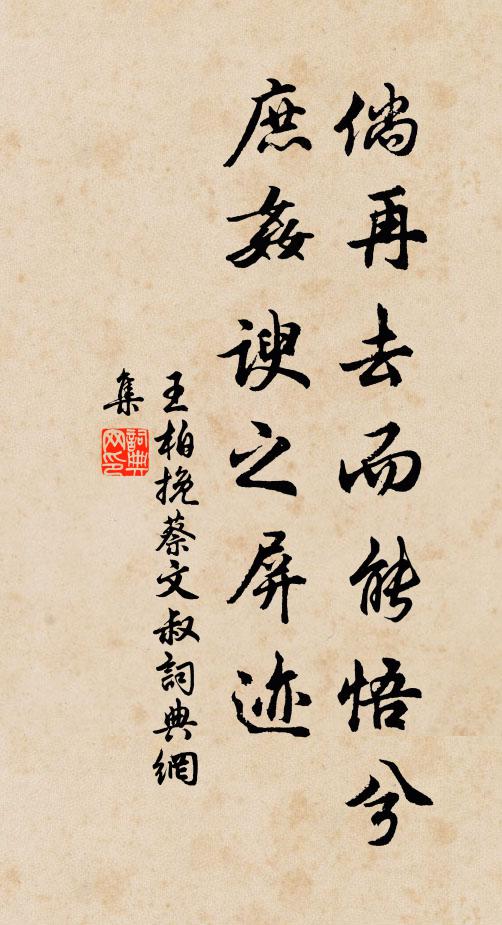 倘再去而能悟兮
庶姦諛之屏迹
王柏挽蔡文叔詞典網
集
詞典网印